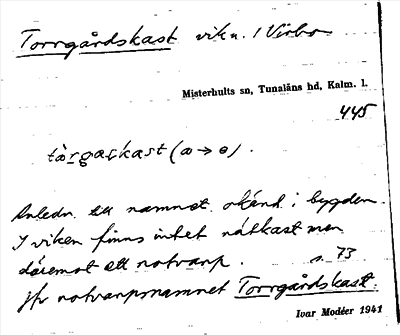 Torrgårdskast vik n. / Virbo
Misterhults sn, Tunaläns hd, Kalm. l.
445
tòrgaskast (a → ə).
Anledn. till namnet okänd i bygden.
I viken finns intet nätkast men
däremot ett notvarp. s. 73
Jfr notvarpnamnet Torrgårdskast.
Ivar Modéer 1941